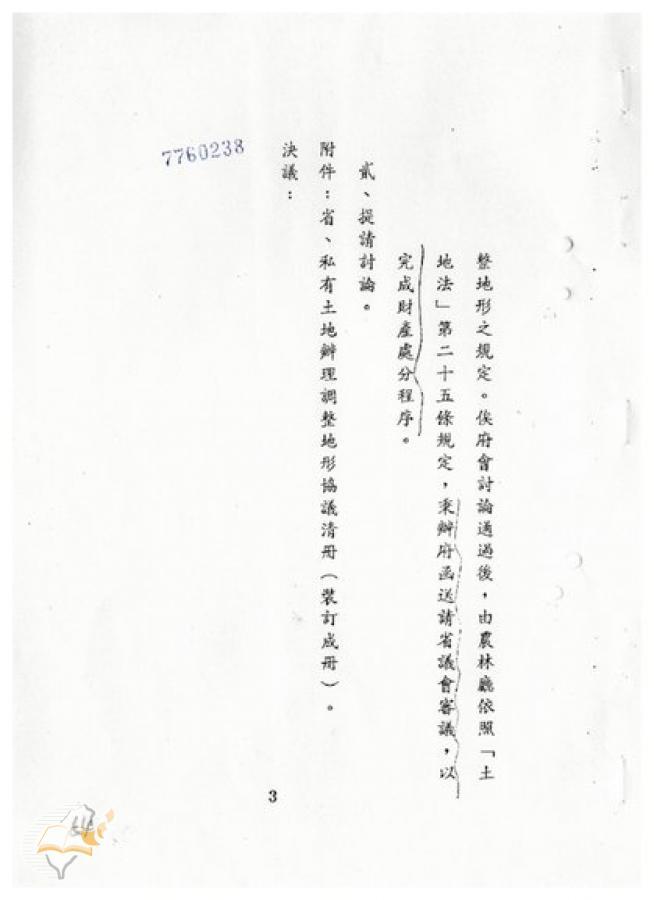 整地形之規定。俟府會討論通過後，由農林廳依照「土
地法」第二十五條規定，秉辦府函送請省議會審議，以
完成財產處分程序。
貳、提請討論。
附件：省、私有土地辦理調整地形協議清冊（裝訂成冊）。
決議：
7760238
3
64